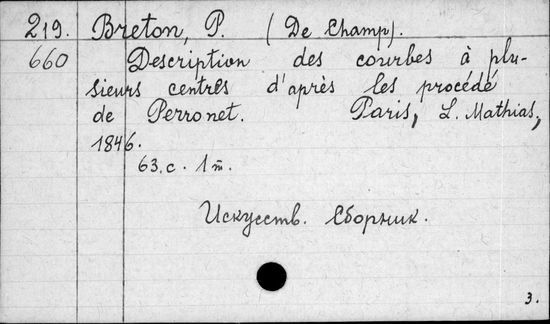 219. Breton, P. (De Champ).
660 Description des courbes à plu-
sieurs centres d'après les procédé
de Perronet. Paris, L. Mathias,
1846.
63.c. 1 m̄.
Искусств. Сборник.
3.